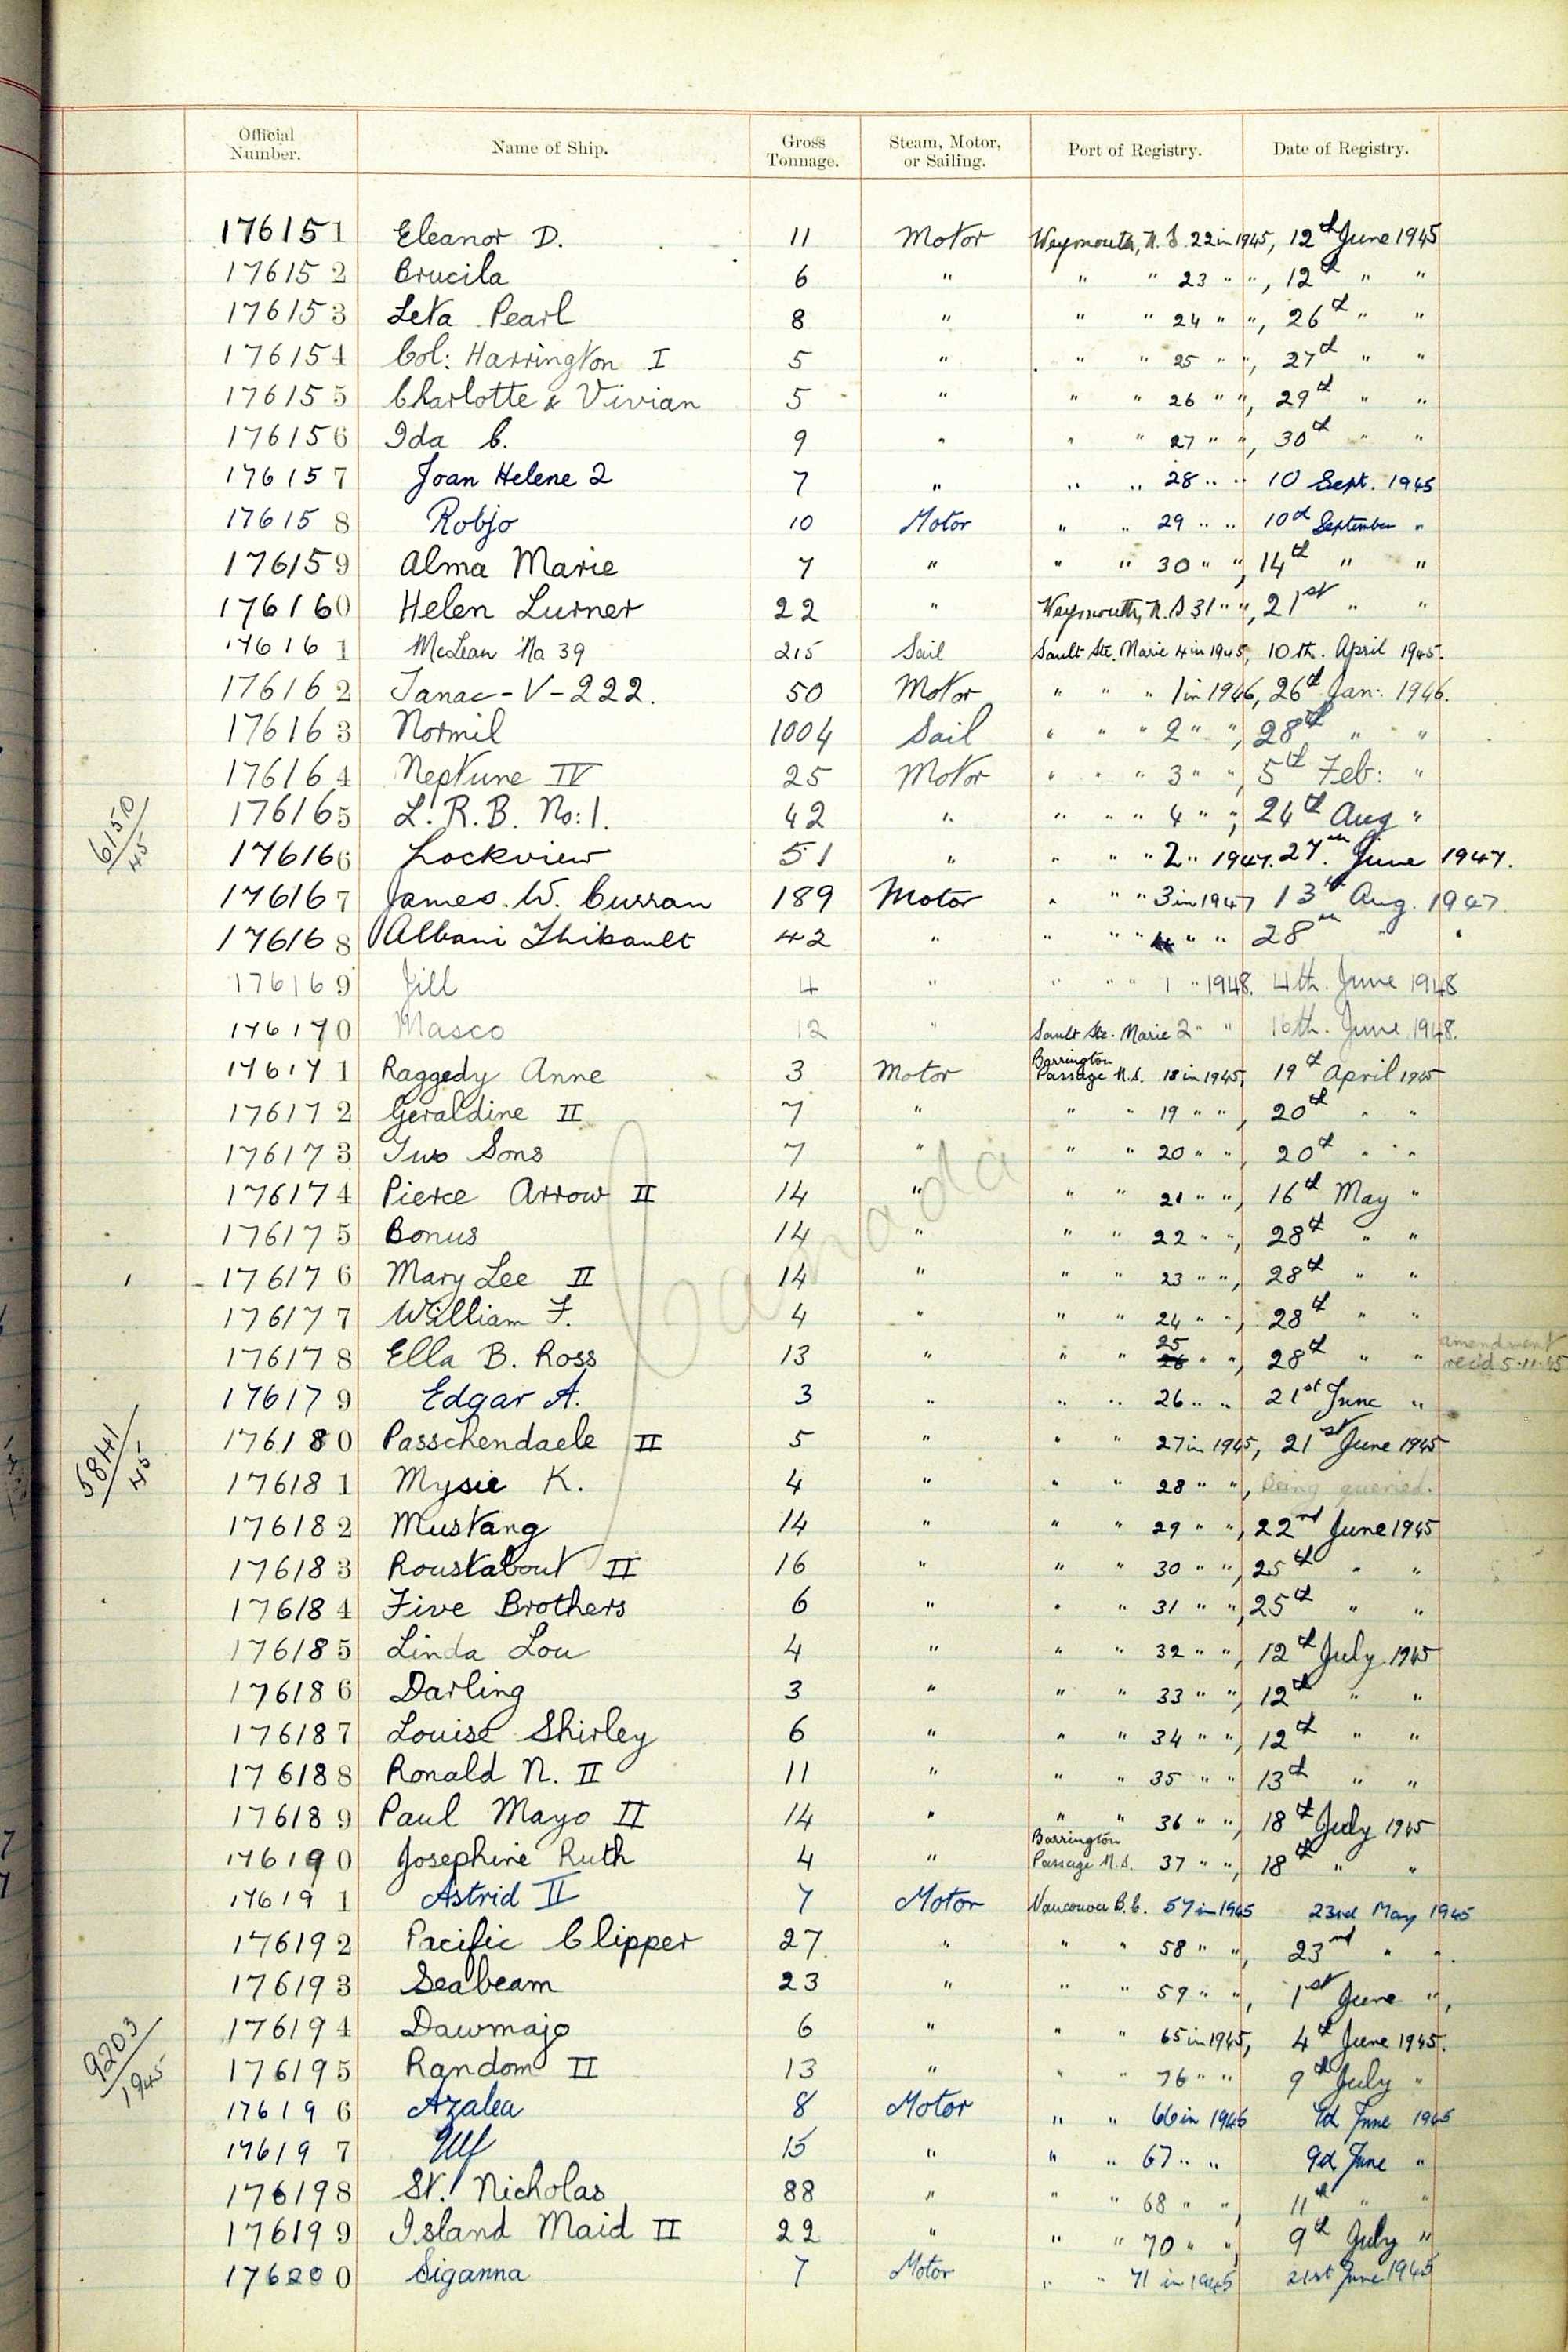 Official Number. Name of Ship. Gross Tonnage. Steam, Motor, or Sailing. Port of Registry. Date of Registry.
176151 Eleanor D. 11 Motor Weymouth, N.S. 22 in 1945, 12th June 1945
176152 Brucila 6 " " " 23 " ", 12th " "
176153 Leta Pearl 8 " " " 24 " ", 26th " "
176154 Col: Harrington I 5 " " " 25 " ", 27th " "
176155 Charlotte & Vivian 5 " " " 26 " ", 29th " "
176156 Ida C. 9 " " " 27 " ", 30th " "
176157 Joan Helene 2 7 " " " 28 " " 10 Sept. 1945
176158 Robjo 10 Motor " " 29 " " 10th September "
176159 Alma Marie 7 " " " 30 " ", 14th " "
176160 Helen Turner 22 " Weymouth, N.S 31 " ", 21st " "
176161 McLean No 39 215 Sail Sault Ste. Marie 4 in 1945, 10th. April 1945.
176162 Tanac-V-222. 50 Motor " " " 1 in 1946, 26th Jan: 1946.
176163 Normil 1004 Sail " " " 2 " ", 28th " "
176164 Neptune IV 25 Motor " " " 3 " ", 5th Feb: "
176165 L.R.B. No:1. 42 " " " " 4 " ", 24th Aug "
6150/45
176166 Lockview 51 " " " " 2 " 1947. 27th June 1947.
176167 James. W. Curran 189 Motor " " " 3 in 1947 13th Aug. 1947.
176168 Albani Thibault 42 " " " " 4 " " 28th " "
176169 Jill 4 " " " " 1 " 1948. 4th. June 1948
176170 Masco 12 " Sault Ste. Marie 2 " " 16th. June 1948.
176171 Raggedy Anne 3 Motor Barrington Passage N.S. 18 in 1945, 19th April 1945
176172 Geraldine II 7 " " " 19 " ", 20th " "
176173 Two Sons 7 " " " 20 " ", 20th " "
176174 Pierce Arrow II 14 " " " 21 " ", 16th May "
Canada
176175 Bonus 14 " " " 22 " ", 28th " "
176176 Mary Lee II 14 " " " 23 " ", 28th " "
176177 William F. 4 " " " 24 " ", 28th " "
176178 Ella B. Ross 13 " " " 25 26 " ", 28th " " amendment rec'd 5.11.45
176179 Edgar A. 3 " " " 26 " " 21st June "
176180 Passchendaele II 5 " " " 27 in 1945, 21st June 1945
5841/45
176181 Mysie K. 4 " " " 28 " ", being queried.
176182 Mustang 14 " " " 29 " ", 22nd June 1945
176183 Roustabout II 16 " " " 30 " ", 25th " "
176184 Five Brothers 6 " " " 31 " ", 25th " "
176185 Linda Lou 4 " " " 32 " ", 12th July 1945
176186 Darling 3 " " " 33 " ", 12th " "
176187 Louise Shirley 6 " " " 34 " ", 12th " "
176188 Ronald N. II 11 " " " 35 " " 13th " "
176189 Paul Mayo II 14 " " " 36 " ", 18th July 1945
176190 Josephine Ruth 4 " Barrington Passage N.S. 37 " ", 18th " "
176191 Astrid II 7 Motor Vancouver B.C. 57 in 1945 23rd May 1945
176192 Pacific Clipper 27 " " " 58 " ", 23rd " ".
176193 Seabeam 23 " " " 59 " ", 1st June ",
176194 Dawmajo 6 " " " 65 in 1945, 4th June 1945.
9203/1945
176195 Random II 13 " " " 76 " " 9th July "
176196 Azalea 8 Motor " " 66 in 1945 7th June 1945
176197 Ulf 15 " " " 67 " " 9th June "
176198 St. Nicholas 88 " " " 68 " ", 11th " "
176199 Island Maid II 22 " " " 70 " ", 9th July "
176200 Siganna 7 Motor " " 71 in 1945 21st June 1945